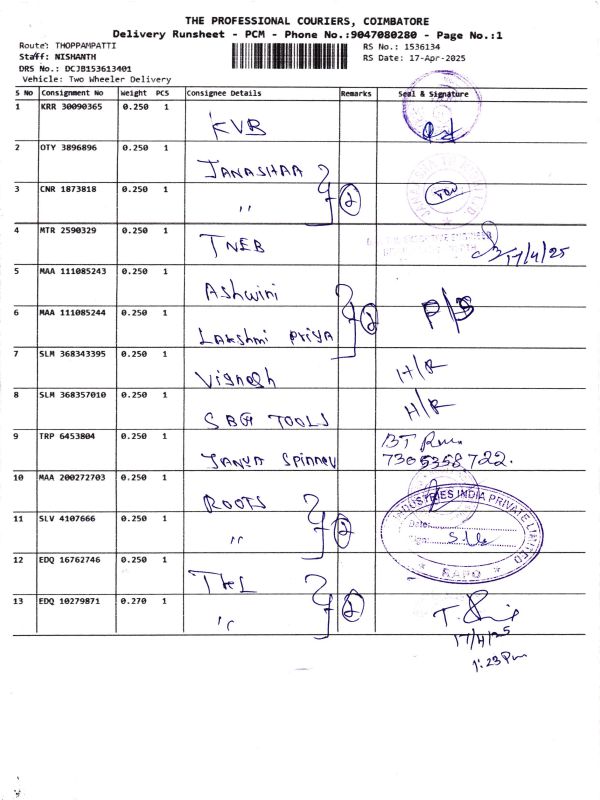 THE PROFESSIONAL COURIERS, COIMBATORE
Delivery Runsheet - PCM - Phone No.:9047080280 - Page No.:1
Route: THOPPAMPATTI
RS No.: 1536134
Staff: NISHANTH
RS Date: 17-Apr-2025
DRS No.: DCJB153613401
Vehicle: Two Wheeler Delivery
S No Consignment No Weight PCS Consignee Details Remarks Seal & Signature
1 KRR 30090365 0.250 1 KVB
2 OTY 3896896 0.250 1 JANASHAA
3 CNR 1873818 0.250 1 " 2
4 MTR 2590329 0.250 1 TNEB 17/4/25
5 MAA 111085243 0.250 1 Ashwini
6 MAA 111085244 0.250 1 Lakshmi Priya 2 P/S
7 SLM 368343395 0.250 1 Vignesh H/R
8 SLM 368357010 0.250 1 SBG TOOLS H/R
9 TRP 6453804 0.250 1 7305358722.
10 MAA 200272703 0.250 1 ROOTS
11 SLV 4107666 0.250 1 " 2
INDUSTRIES INDIA PRIVATE LIMITED
Date:
Sign:
12 EDQ 16762746 0.250 1
13 EDQ 10279871 0.270 1 " 2
17/4/25
1:23 Pm